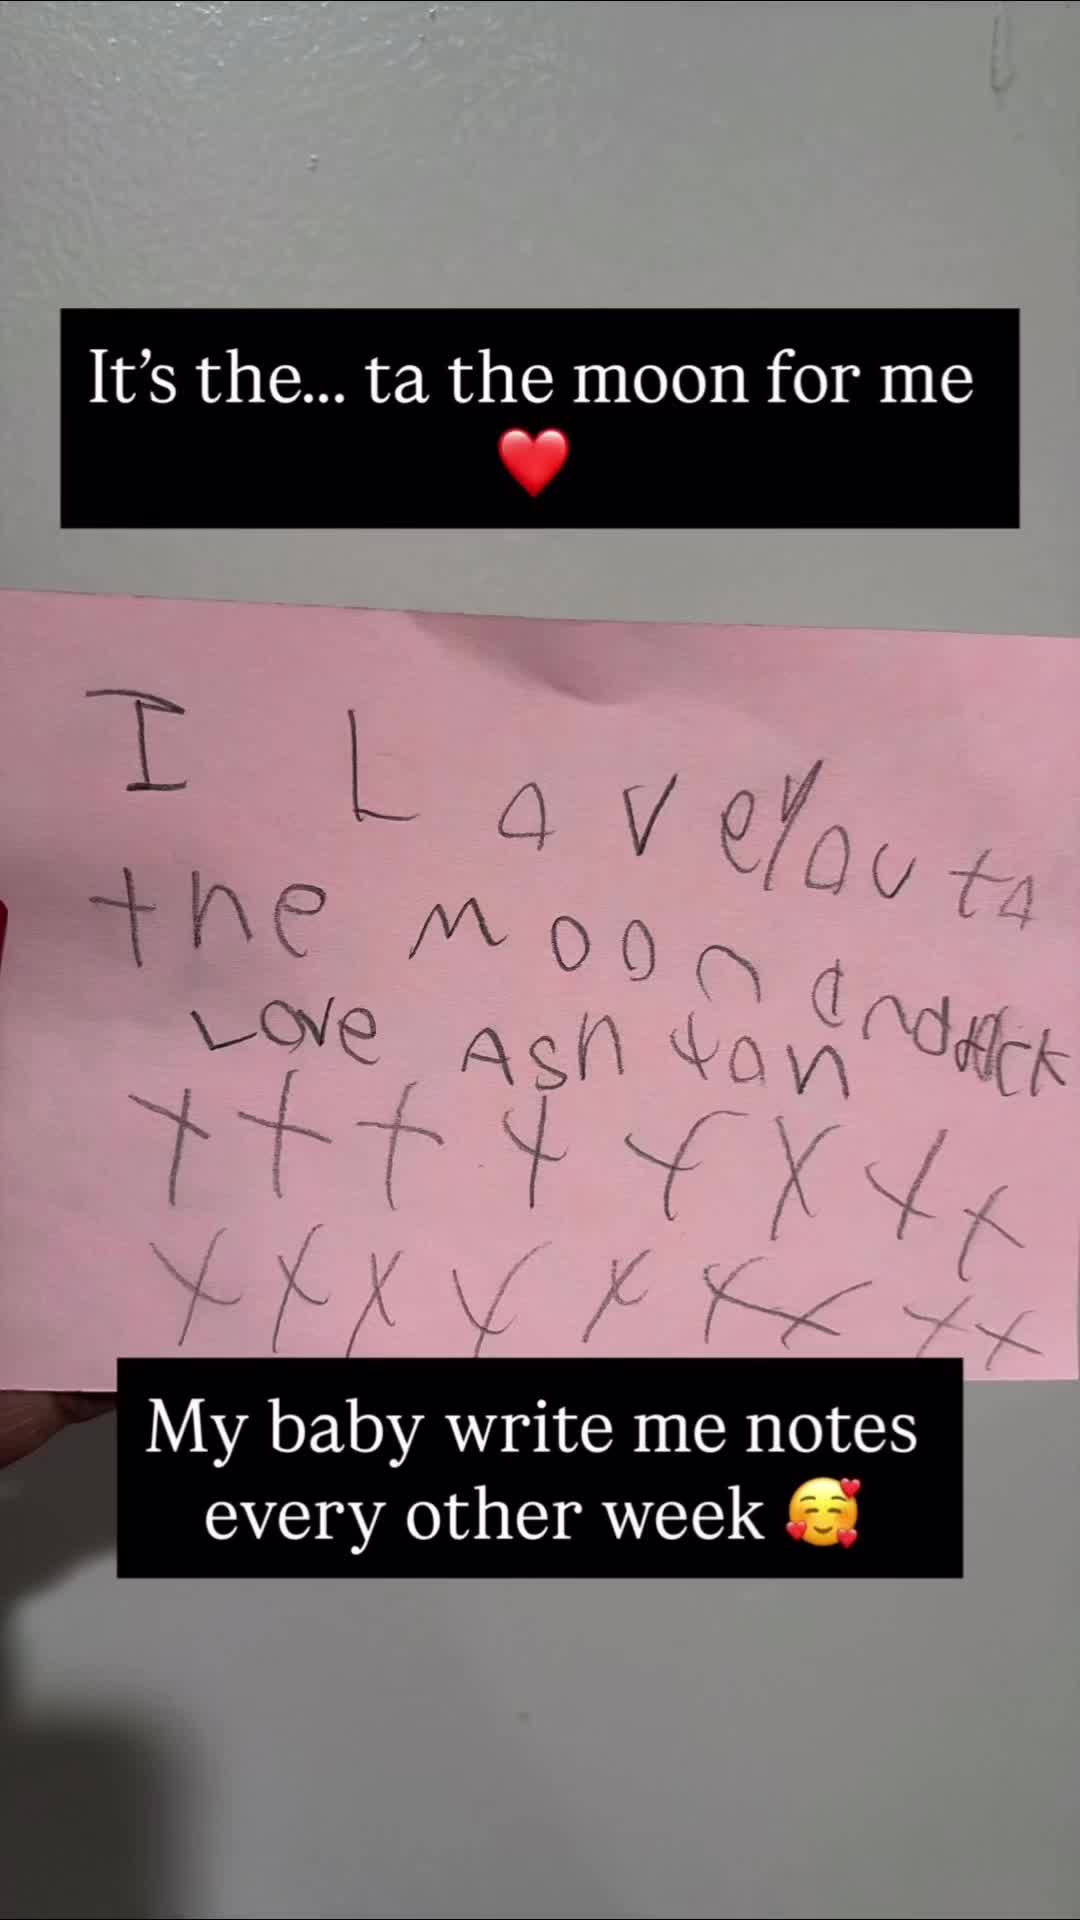 It's the... ta the moon for me
❤️
I Lave you ta
the moon and back
Love Ashton
X X X X X X X X
X X X X X X X X X
My baby write me notes
every other week 🥰